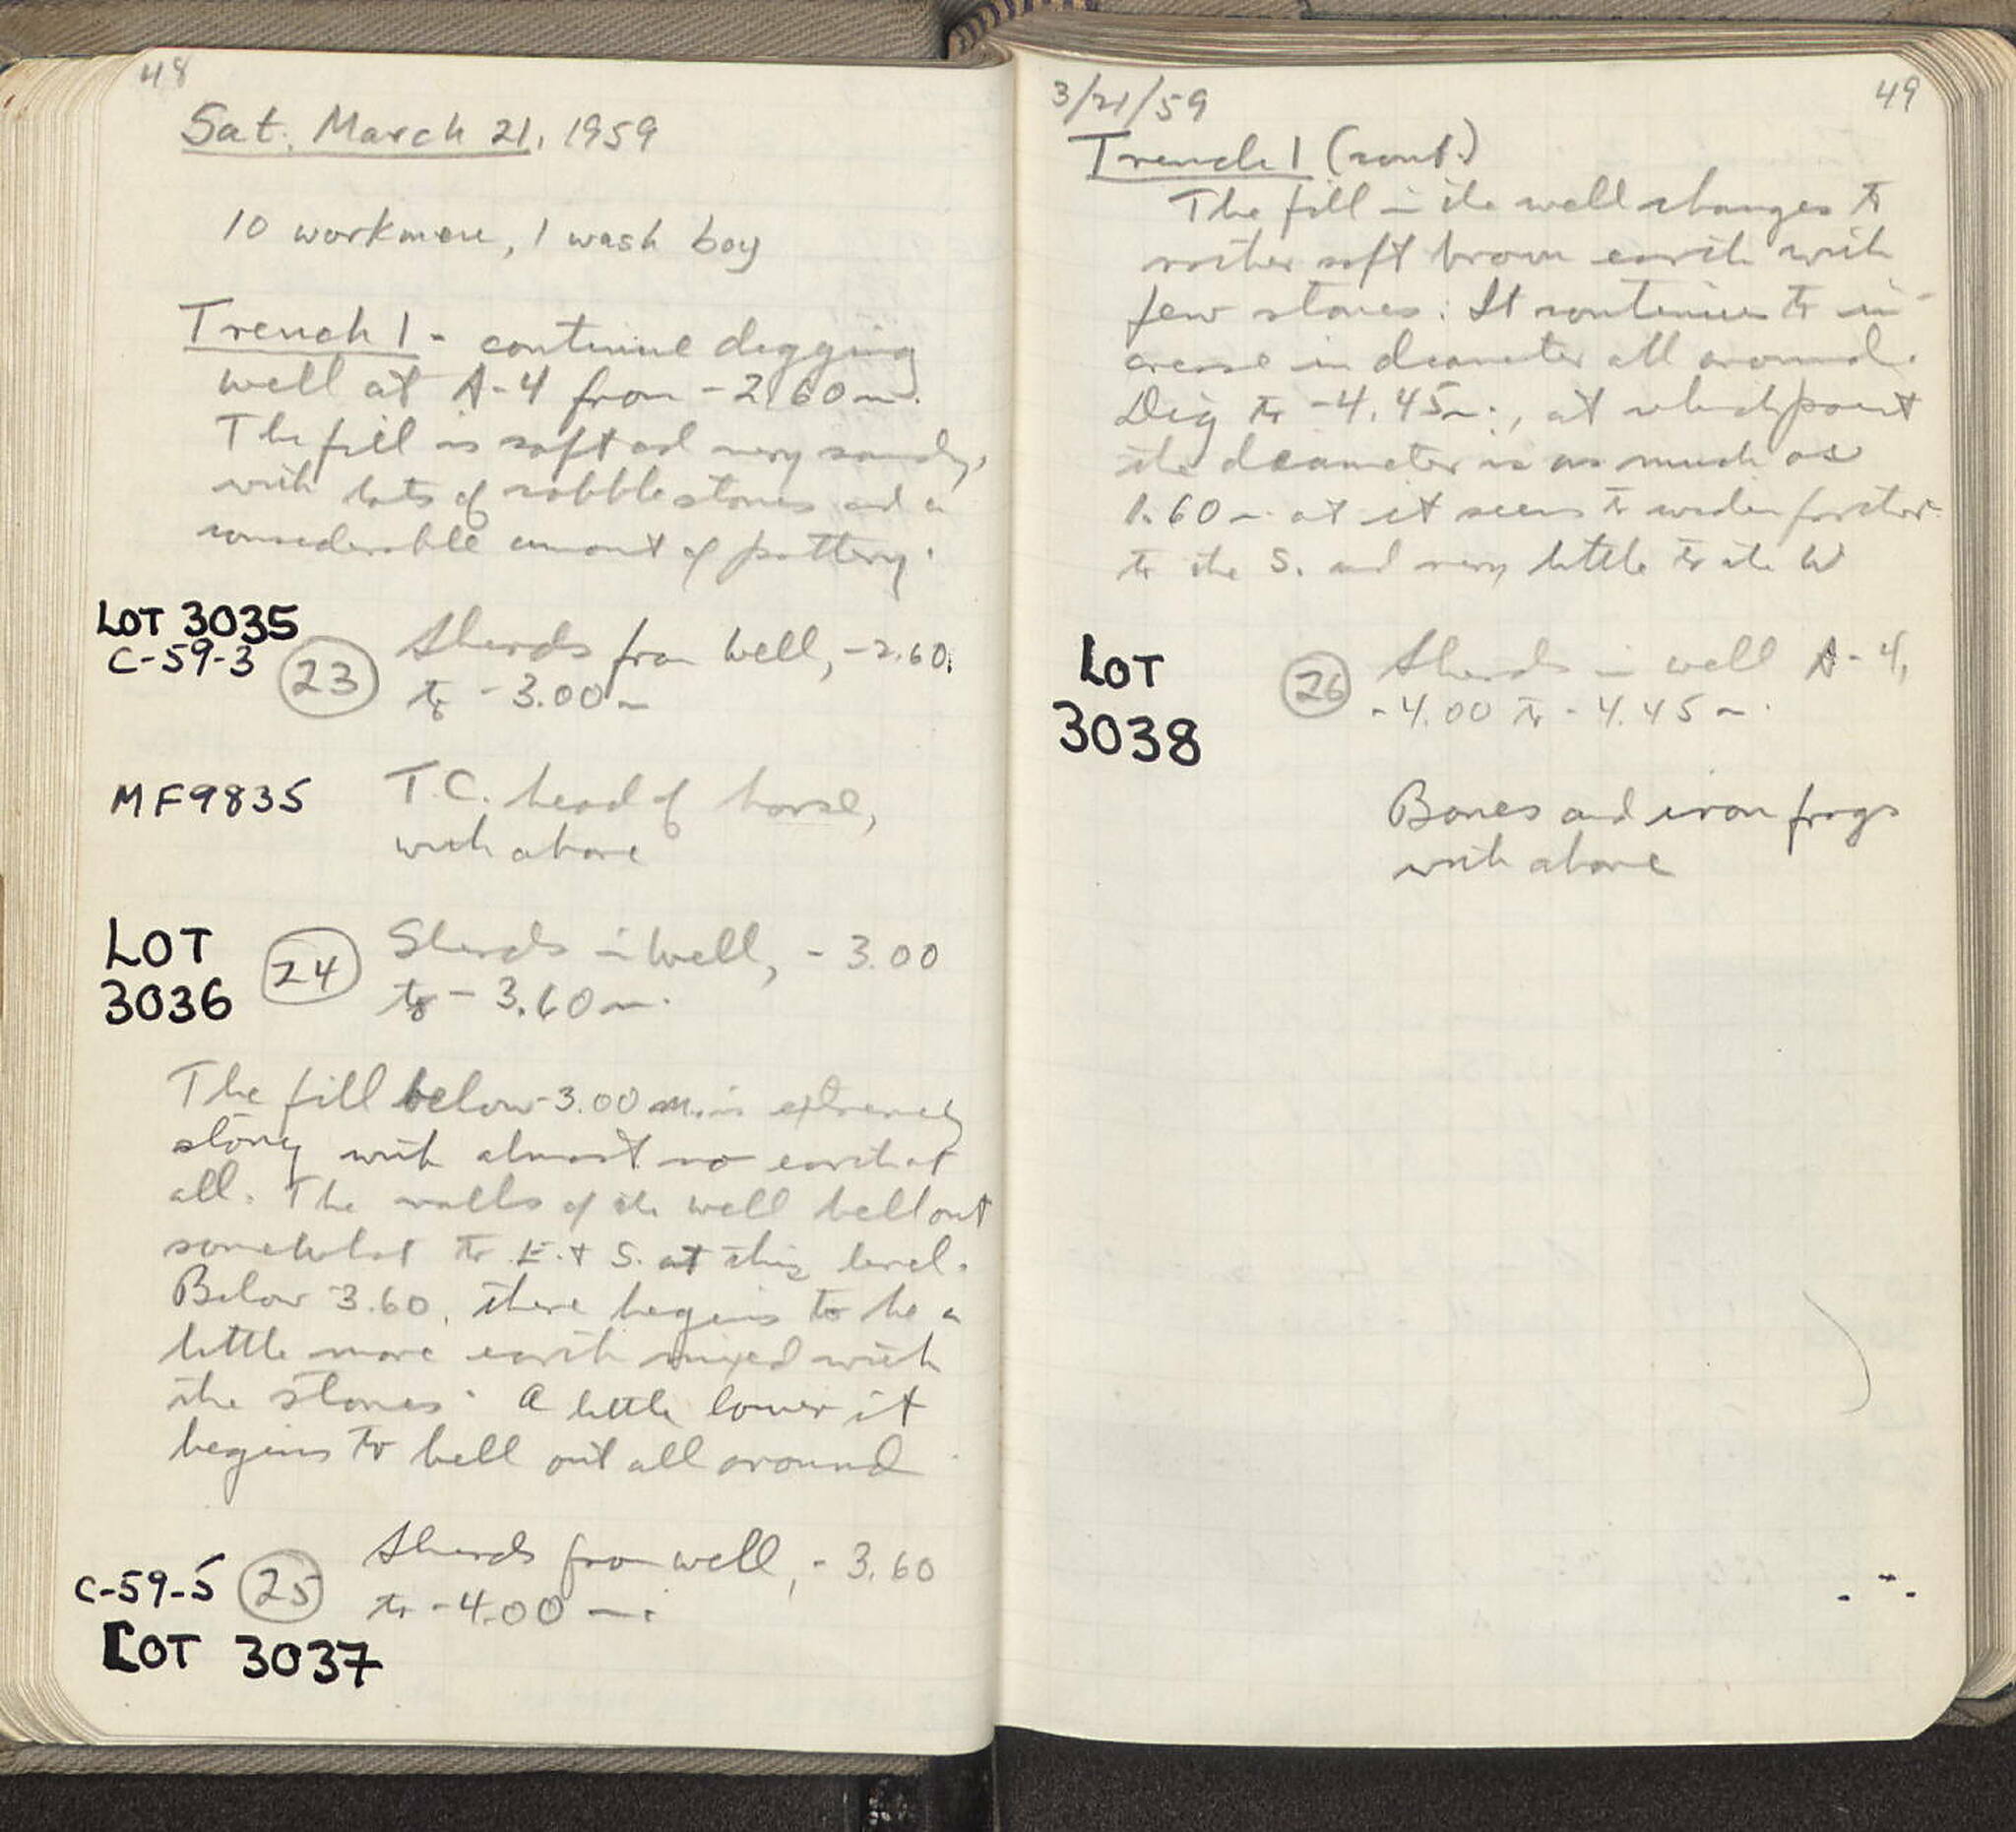 48
Sat. March 21, 1959
10 workmen, 1 wash boy
Trench 1 - continue digging
well at A-4 from -2.60 m.
The fill is soft and very sandy,
with lots of rubble stones and a
considerable amount of pottery.
LOT 3035
C-59-3
23
Sherds from well, -2.60
to -3.00 m
MF9835
T.C. head of horse,
with above
LOT
3036
24
Sherds in well, -3.00
to -3.60 m.
The fill below -3.00 m. is extremely
stony with almost no earth at
all. The walls of the well bell out
somewhat to E. + S. at this level.
Below 3.60, there begins to be a
little more earth mixed with
the stones. A little lower it
begins to bell out all around
C-59-5
25
Sherds from well, -3.60
to -4.00 m.
LOT 3037
3/21/59
49
Trench 1 (cont.)
The fill in the well changes to
rather soft brown earth with
few stones. It continues to in
crease in diameter all around.
Dig to -4.45 m., at which point
the diameter is as much as
1.60 m. at it seems to widen farther
to the S. and very little to the W
LOT
3038
26
Sherds in well A-4,
-4.00 to -4.45 m.
Bones and iron frags
with above